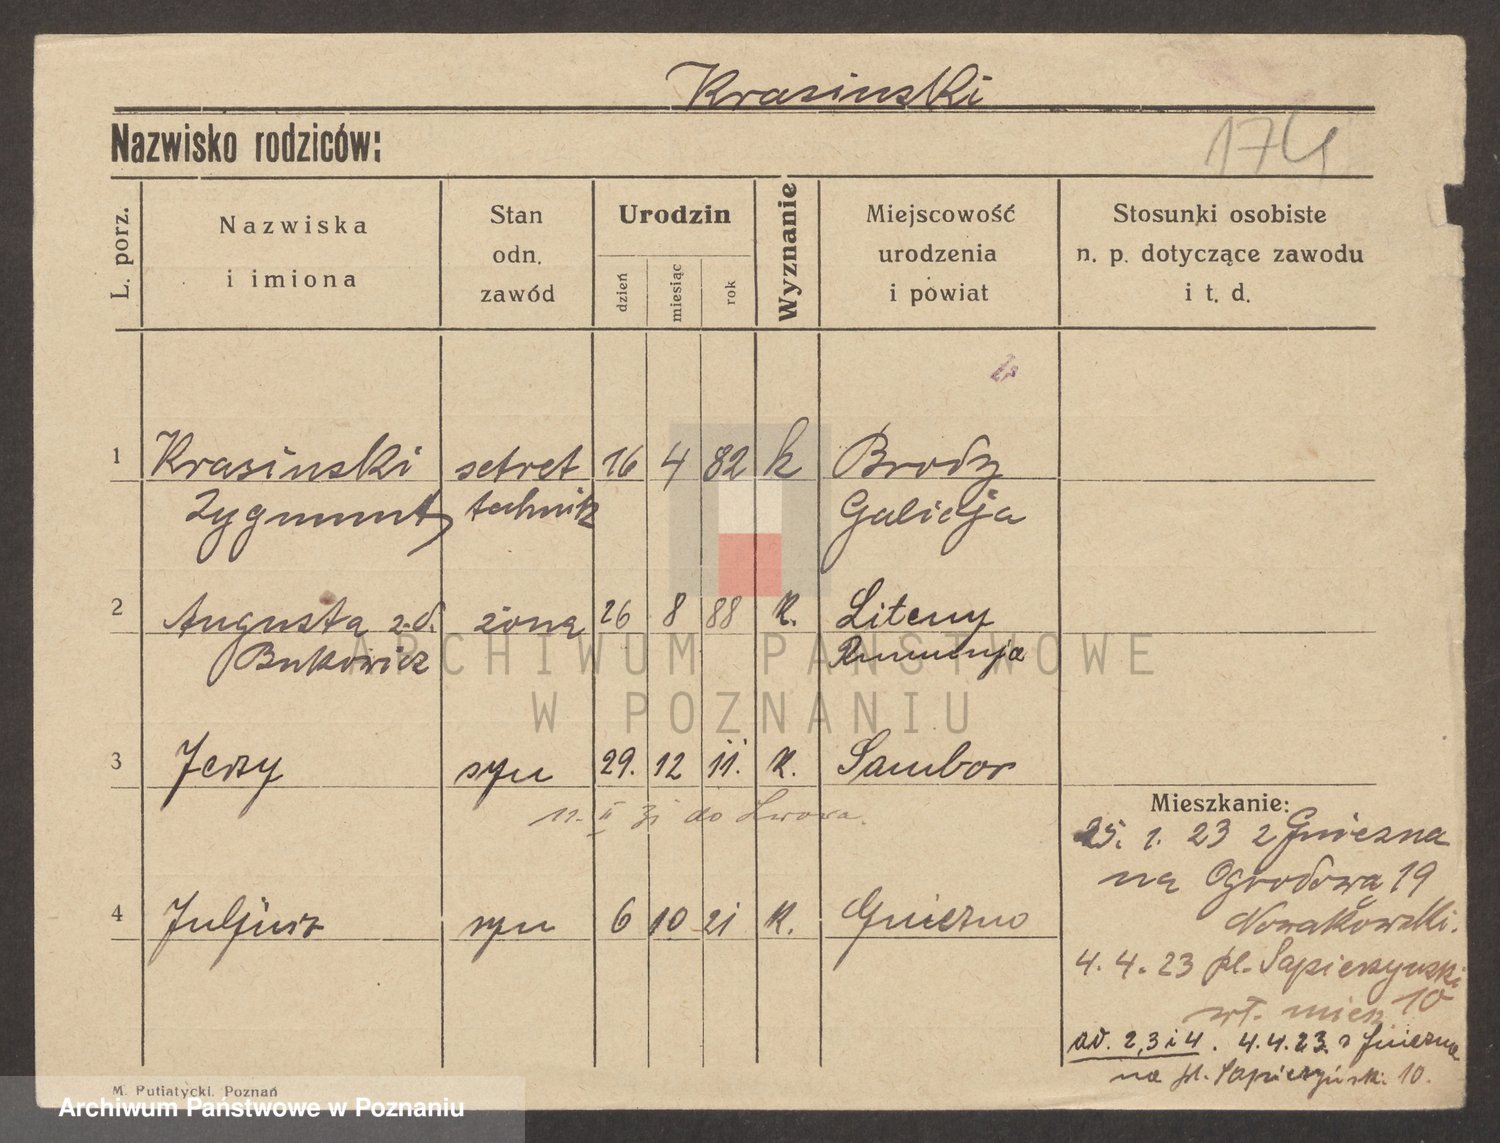 Krasinski
Nazwisko rodziców:
174
L. porz.
Nazwiska
i imiona
Stan
odn.
zawód
Urodzin
dzień
miesiąc
rok
Wyznanie
Miejscowość
urodzenia
i powiat
Stosunki osobiste
n. p. dotyczące zawodu
i t. d.
1 Krasinski sekret 16 4 82 k Brody
Zygmunt technik Galicja
2 Augusta z.d. żona 26 8 88 k. Liteny
Bukowicz Rumunja
ARCHIWUM PAŃSTWOWE
W POZNANIU
3 Jerzy syn 29. 12 11. k. Sambor
11. II 31 do Lwowa.
4 Juljusz syn 6 10 21 k. Gniezno
Mieszkanie:
25. 1. 23 z Gniezna
na Ogrodowa 19
Nowakowski.
4. 4. 23 pl. Sapieżyński
10
wł. miesz
ad. 2, 3 i 4. 4.4.23. z Gniezna
na pl. Sapieżyński. 10.
M. Putiatycki, Poznań
Archiwum Państwowe w Poznaniu